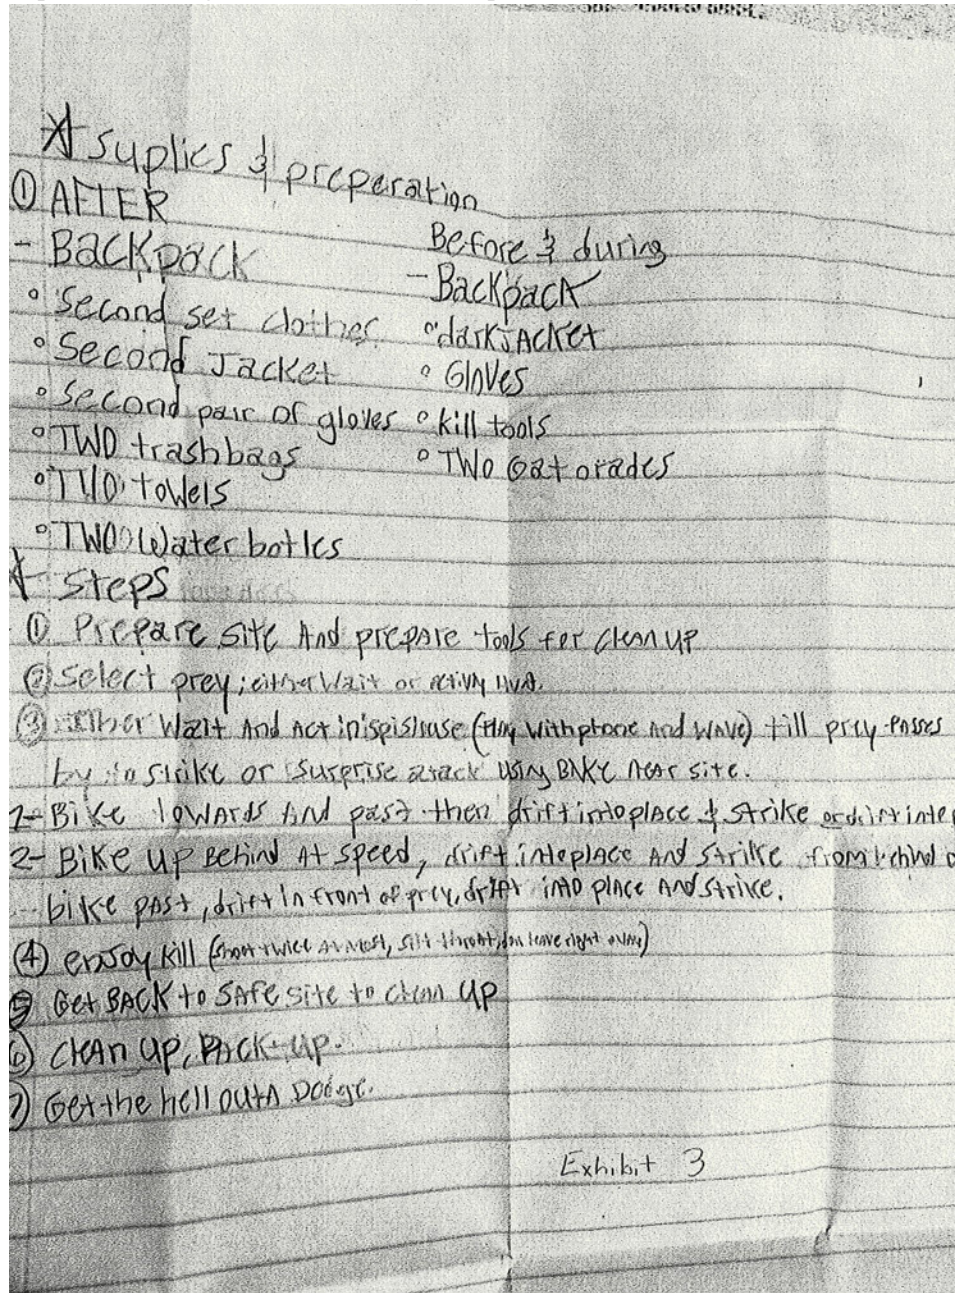 Suplies & preparation
① AFTER
- Backpack
° Second set clothes
° Second Jacket
° Second pair of gloves
° TWO trashbags
° TWO towels
° TWO Water botles
Before & during
- Backpack
° dark JAcket
° Gloves
° kill tools
° TWO Gatorades
Steps
① Prepare site And prepare tools for clean up
② Select prey; either Wait or
③ Either Wait And Act (play with phone And Wave) till prey PASSES
by to strike or surprise attack using BIKE near site.
1- Bike towards And past then drift into place & strike or drift into
2- Bike up Behind At speed, drift into place And Strike from behind
bike past, drift in front of prey, drift into place And strike.
④ enjoy kill (shoot twice At most, slit throat, leave right away)
⑤ Get BACK to SAfe site to clean up
⑥ Clean up, PAck-up.
⑦ Get the hell outA Dodge.
Exhibit 3